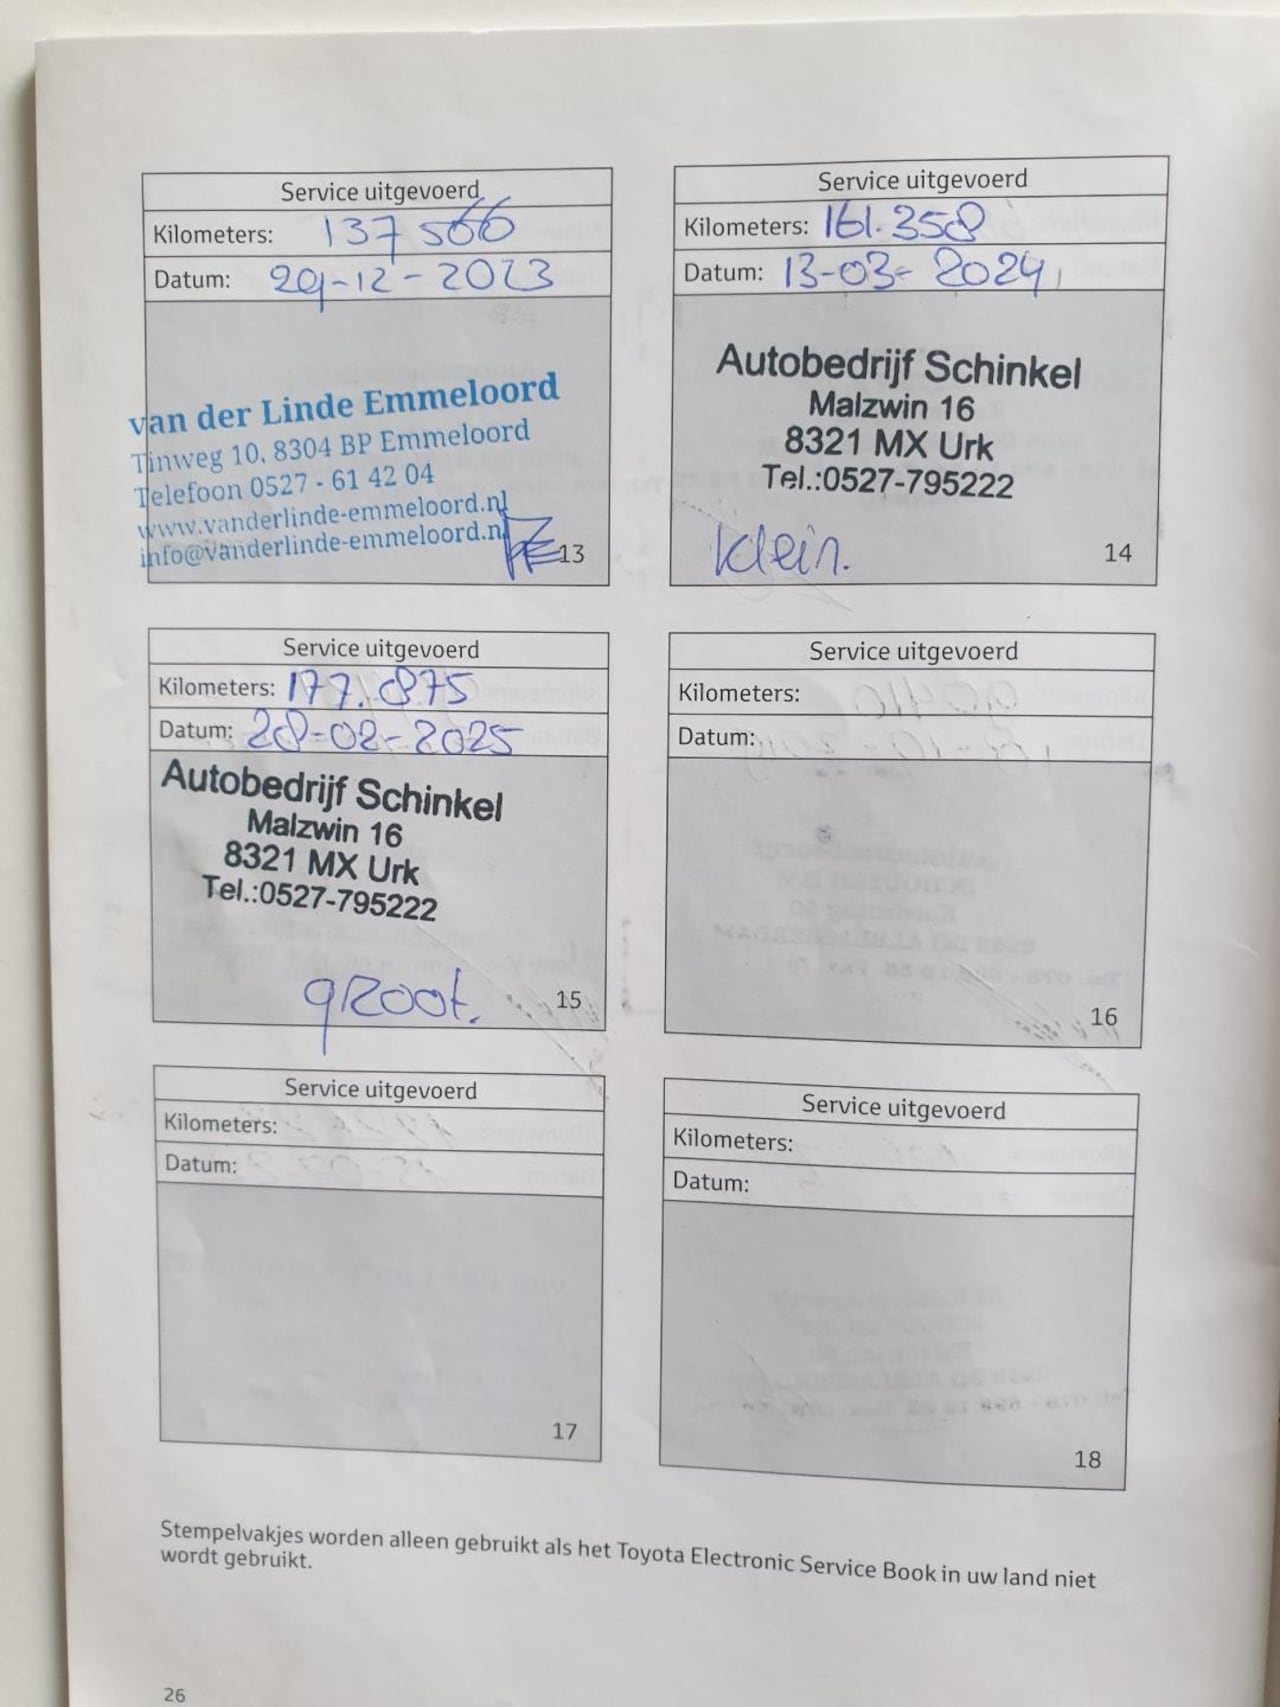 Service uitgevoerd
Kilometers: 137 566
Datum: 29-12-2023
van der Linde Emmeloord
Tinweg 10, 8304 BP Emmeloord
Telefoon 0527 - 61 42 04
www.vanderlinde-emmeloord.nl
info@vanderlinde-emmeloord.nl
13
Service uitgevoerd
Kilometers: 161.358
Datum: 13-03-2024
Autobedrijf Schinkel
Malzwin 16
8321 MX Urk
Tel.:0527-795222
Klein.
14
Service uitgevoerd
Kilometers: 177.875
Datum: 28-02-2025
Autobedrijf Schinkel
Malzwin 16
8321 MX Urk
Tel.:0527-795222
groot.
15
Service uitgevoerd
Kilometers:
Datum:
16
Service uitgevoerd
Kilometers:
Datum:
17
Service uitgevoerd
Kilometers:
Datum:
18
Stempelvakjes worden alleen gebruikt als het Toyota Electronic Service Book in uw land niet
wordt gebruikt.
26